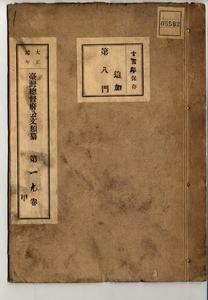 05582
永久保存
追加
第八門
大正元年
臺灣總督府公文類纂
第一九卷
甲